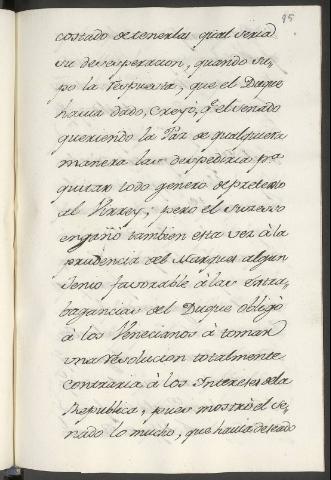 95
costado detenerlas qual seria
su desesperacion, quando su-
po la respuesta, que el Duque
havia dado, Creyò, q.e el Senado
queriendo la Paz de qualquiera
manera las despediria p.a
quitar todo genero de pretexto
al Virrey; pero el sucesso
engañò tambien esta vez à la
prudencia del Marques algun
Genio favorable à las extra-
bagancias del Duque obligò
à los Venecianos à tomar
una resolucion totalmente
contraria à los Intereses dela
Republica, pues mostrò el Se-
nado lo mucho, que havia deseado